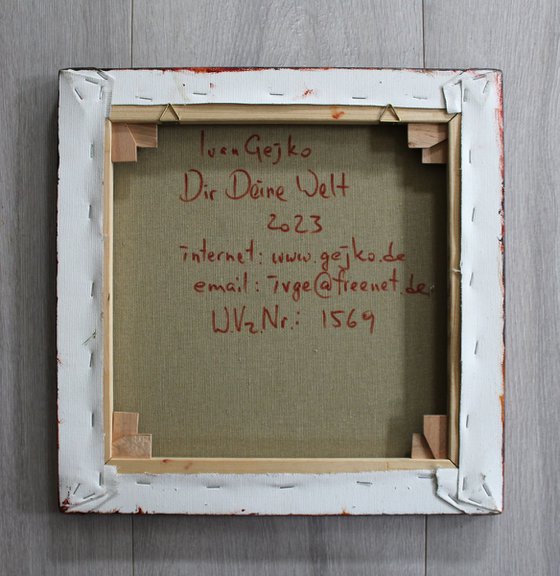 Ivan Gejko
Dir Deine Welt
2023
internet: www.gejko.de
email: ivge@freenet.de
W.Vz.Nr.: 1569